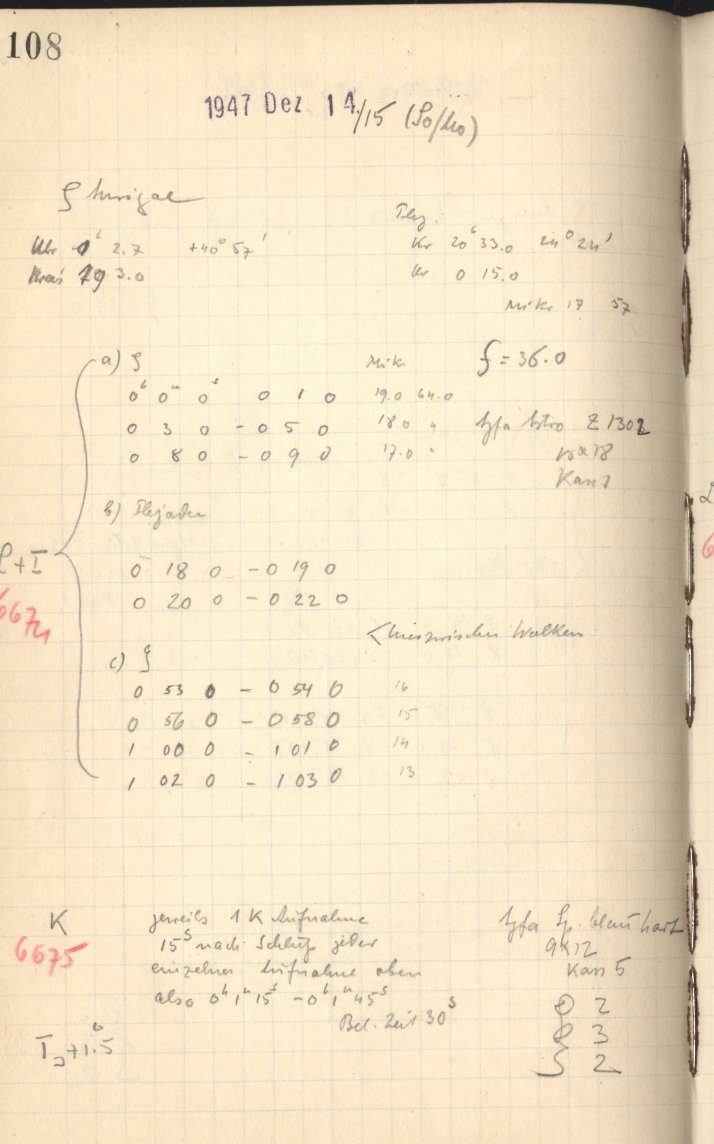 108
1947 Dez 14./15 (So/Mo)
ζ Aurigae
Uhr 0ʰ 2.7 +40° 57'
Kreis 19 3.0
Plej.
Kr 20ʰ 33.0 24° 24'
Ur 0 15.0
Mikr 17 57
a) ζ Mik f = 36.0
0ʰ 0ᵐ 0ˢ 0 1 0 19.0 64.0
0 3 0 - 0 5 0 18 0 " Agfa Astro Z 1302
0 8 0 - 0 9 0 17.0 " 13x18
Kass 1
b) Plejaden
L+I
0 18 0 - 0 19 0
0 20 0 - 0 22 0
6674
< Inzwischen Wolken
c) ζ
0 53 0 - 0 54 0 16
0 56 0 - 0 58 0 15
1 00 0 - 1 01 0 14
1 02 0 - 1 03 0 13
K
6675
jeweils 1 K Aufnahme
15ˢ nach Schluß jeder
einzelnen Aufnahme oben
also 0ʰ 1ᵐ 15ˢ - 0ʰ 1ᵐ 45ˢ
Bel. Zeit 30ˢ
Agfa Sp. blau hart
9x12
Kass 5
2
3
2